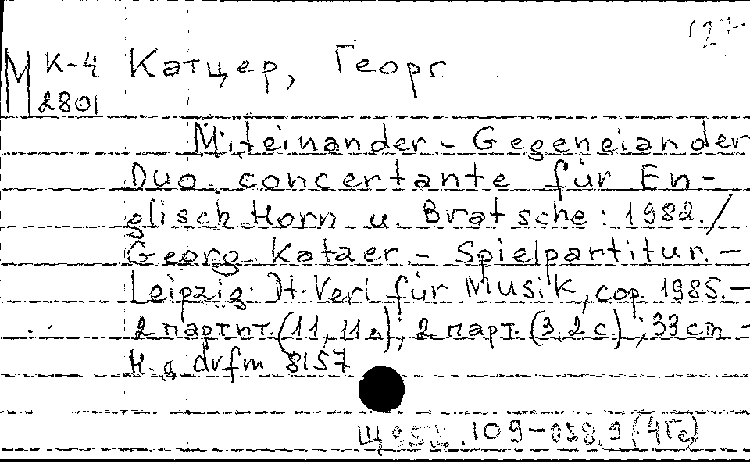 127
М К-4 Катцер, Георг
2801
Miteinander - Gegeneiander
Duo concertante für En-
glisch Horn u. Bratsche: 1982. /
Georg Katzer. - Spielpartitur. -
Leipzig: Dt. Verl für Musik, cop. 1985. -
2 партит. (11, 11 s); 2 парт. (3, 2 с); 33 cm -
Н. д. dvfm 8157
Щ 109-038.9(4Ге)